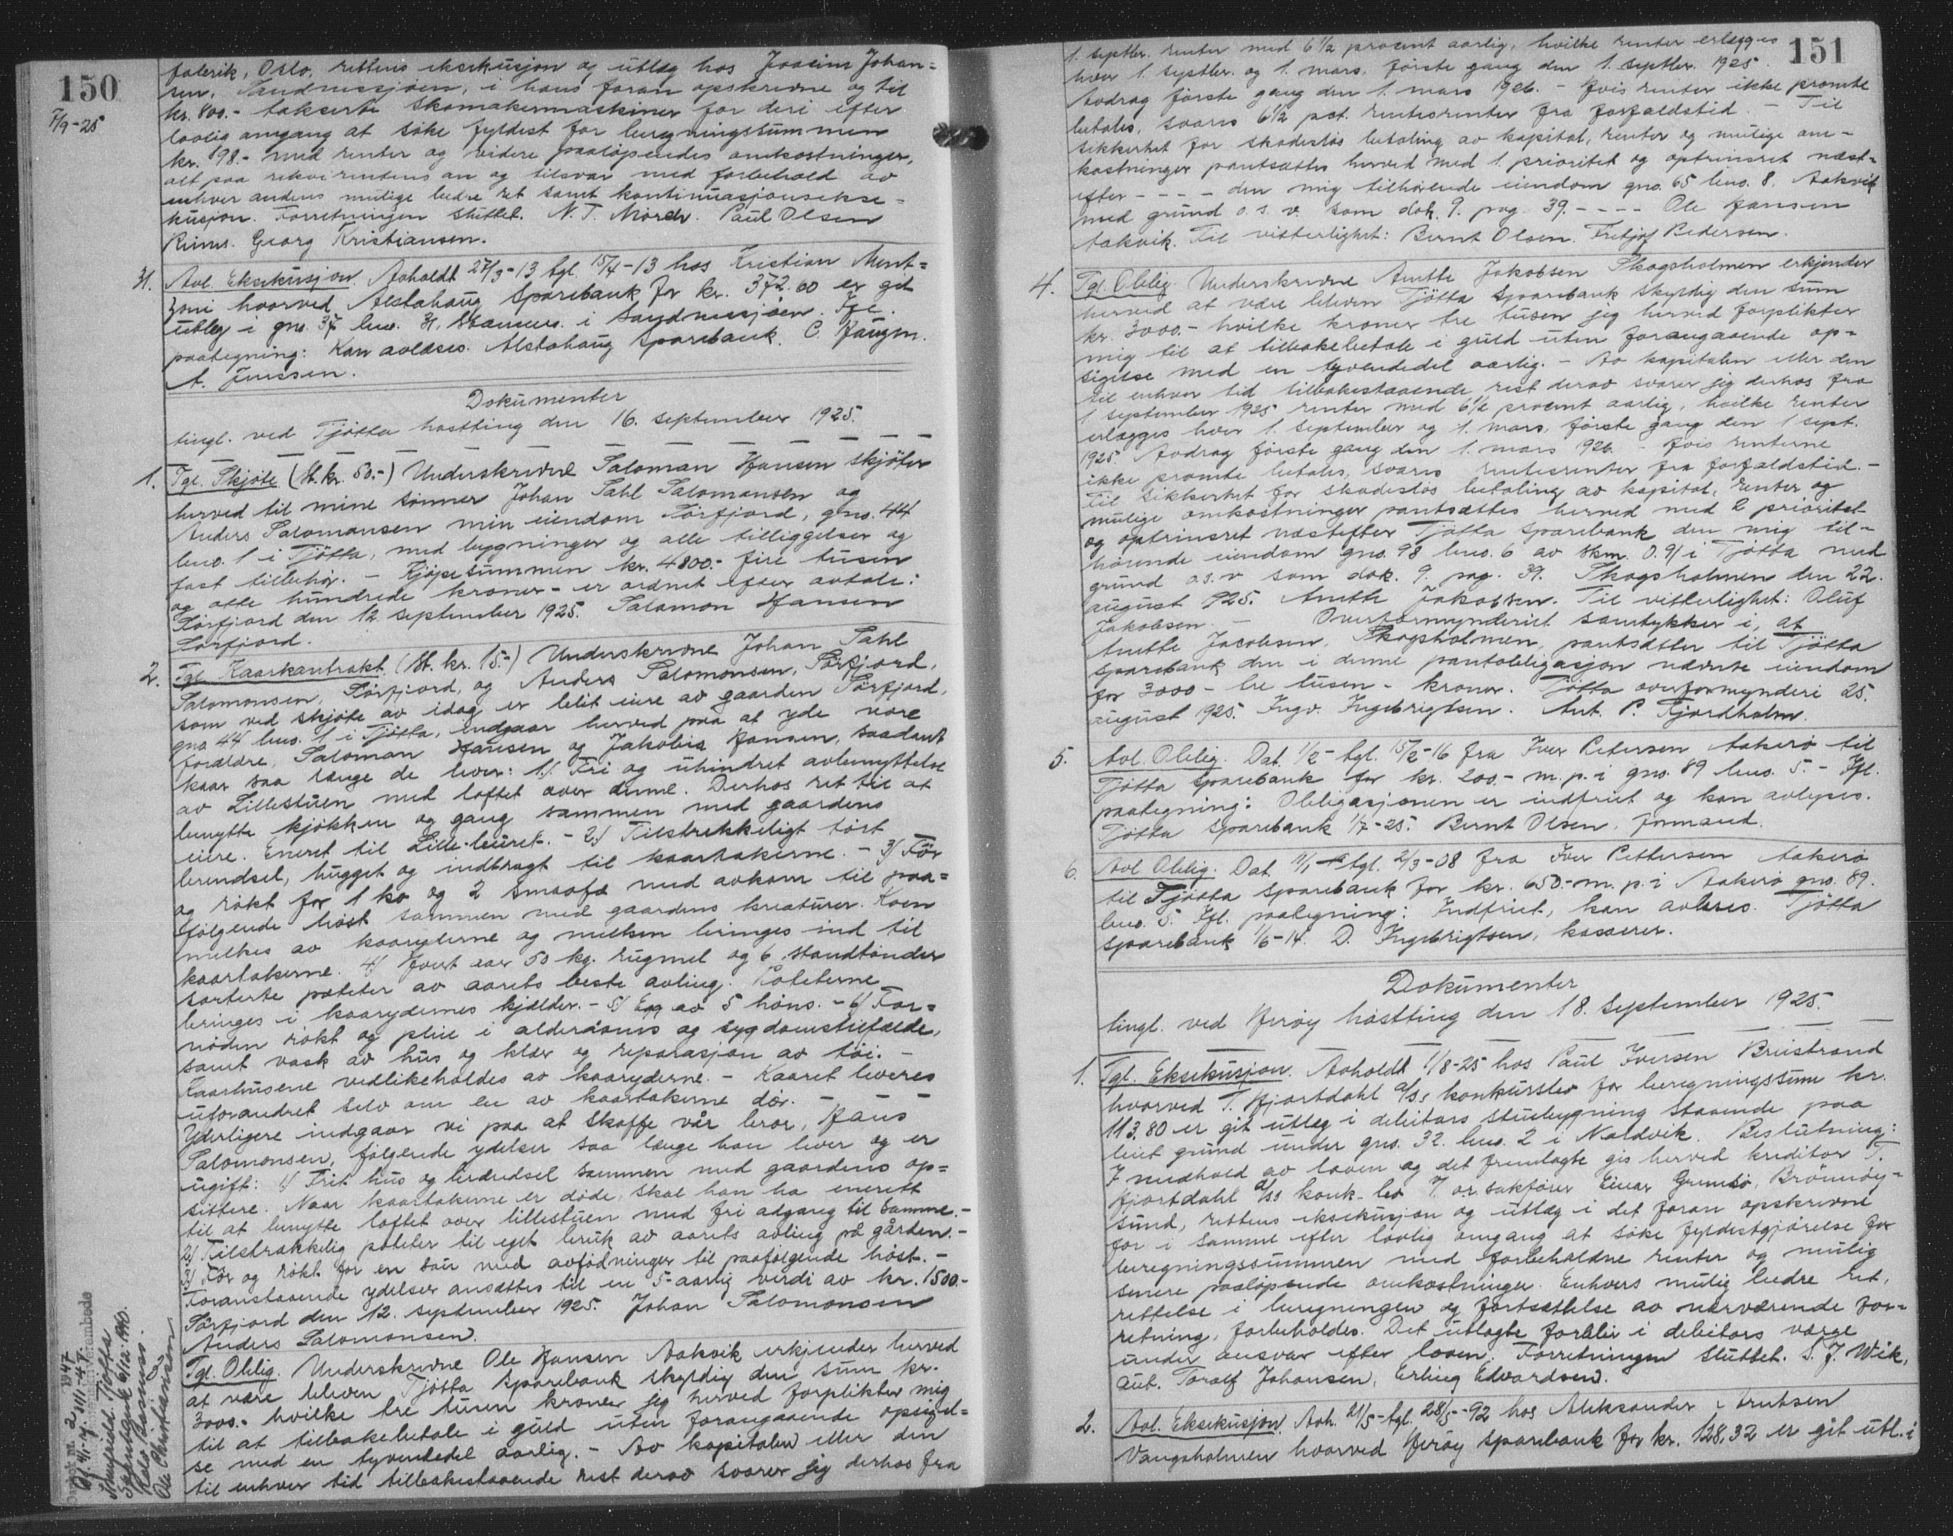 150
7/9-25
fabrik, Oslo, rettens eksekusjon og utlæg hos Joacim Johan=
sen, Sandnessjøen, i hans foran opskrevne og til
kr. 800.- takserte skomakermaskiner for deri efter
lovlig omgang at søke fyldest for beregningssummen
kr. 198.- med renter og videre paaløpendes omkostninger,
alt paa rekvirentens an og tilsvar med forbehold av
enhver andens mulige bedre ret samt kontinuasjonsekse=
kusjon. Forretningen sluttet. N. T. Mörch. Paul Olsen
Georg Kristiansen.
31. Avl. Eksekusjon. Avholdt 27/3-13 tgl. 15/4-13 hos Kristian Ment=
zoni hvorved Alstahaug Sparebank for kr. 372.60 er git
utlæg i gno. 37 bno. 31, i Sandnessjøen. Ifl.
paategning: Kan avlæses. Alstahaug Sparebank. C. Haugen.
A. Jenssen.
Dokumenter
tingl. ved Tjøtta høstting den 16. september 1925.
1. Tgl. Skjøte (St. kr. 50.-) Underskrevne Saloman Hansen skjøter
herved til mine sønner Johan Sahl Salomonsen og
Anders Salomonsen min eiendom Sörfjord, gno. 44
bno. 1 i Tjøtta, med bygninger og alle tilliggelser og
fast tilbehør. - Kjøpesummen kr. 4800.- fire tusen
og otte hundrede kroner - er ordnet efter avtale:
Sörfjord den 12. september 1925. Salomon Hansen
Sörfjord.
2. Tgl. Kaarkontrakt. (St. kr. 15.-) Underskrevne Johan Sahl
Salomonsen, Sörfjord, og Anders Salomonsen, Sörfjord,
som ved skjøte av idag er blit eiere av gaarden Sörfjord,
gno 44 bno. 1 i Tjøtta, indgaar herved paa at yde vore
foræeldre, Saloman Hansen og Jakobia Hansen, saadant
kaar saa længe de lever: 1) Fri og uhindret avbenyttelse
av Lillestuen med loftet over denne. Derhos ret til at
benytte kjøkken og gang sammen med gaardens
eiere. Eneret til Lille-buret. - 2) Tilstrekkeligt tört
brendsel, hugget og indbragt til kaartakerne. - 3) För
og røkt for 1 ko og 2 smaafæ med avkom til paa=
følgende høst sammen med gaardens kreaturer. Koen
melkes av kaaryderne og melken bringes ind til
kaartakerne. 4) Hvert aar 50 kg. rugmel og 6 standtønder
sorterte poteter av aarets beste avling. Poteterne
bringes i kaarydernes kjælder. - 5) Egg av 5 höns. - 6) For=
nøden røkt og pleie i alderdoms og sygdomstilfælde,
samt vask av hus og klær og reparasjon av töi. -
Kaarhusene vedlikeholdes av kaaryderne. - Kaaret leveres
uforandret selv om en av kaartakerne dör. -
Yderligere indgaar vi paa at skaffe vår bror, Hans
Salomonsen, følgende ydelser saa længe han lever og er
ugift: 1) Frit hus og brendsel sammen med gaardens op=
sittere. Naar kaartakerne er døde, skal han ha enerett
til at benytte loftet over lillestuen med fri adgang til samme. -
2) Tilstrækkelig poteter til eget bruk av aarets avling på gården. -
3) För og røkt for en sau med avfødninger til paafølgende höst. -
Foranstaaende ydelser ansættes til en 5-aarlig verdi av kr. 1500.-
Sörfjord den 12. september 1925. Johan Salomonsen
Anders Salomonsen.
Tgl. Oblig. Underskrevne Ole Hansen Aakvik erkjender herved
at være bleven Tjøtta Sparebank skyldig den sum kr.
3000.- hvilke tre tusen kroner jeg herved forplikter mig
til at tilbakebetale i guld uten forangaaende opsigel=
se med en tyvendedel aarlig. - Av kapitalen eller den
til enhver tid tilbakestaaende rest derav svarer jeg derhos fra
151
1. septbr. renter med 6 1/2 procent aarlig, hvilke renter erlægges
hver 1. septbr. og 1. mars, første gang den 1. septbr. 1925.
Avdrag første gang den 1. mars 1926. - Hvis renter ikke promte
betales, svares 6 1/2 pct. rentesrenter fra forfaldstid. - Til
sikkerhet for skadesløs betaling av kapital, renter og mulige om=
kostninger pantsættes herved med 1 prioritet og optrinsret næst=
efter - - - - den mig tilhørende eiendom gno. 65 bno. 8. Aakvik
med grund o.s.v. som dok. 9. pag. 39. - - - - Ole Hansen
Aakvik. Til vitterlighet: Bernt Olsen. Fritjof Pedersen.
4. Tgl. Oblig. Underskrevne Anette Jakobsen Skogsholmen erkjender
herved at være bleven Tjøtta Sparebank skyldig den sum
kr. 3000.- hvilke kroner tre tusen jeg herved forplikter
mig til at tilbakebetale i guld uten forangaaende op=
sigelse med en tyvendedel aarlig. - Av kapitalen eller den
til enhver tid tilbakestaaende rest derav svarer jeg derhos fra
1 september 1925 renter med 6 1/2 procent aarlig, hvilke renter
erlægges hver 1. september og 1. mars, første gang den 1 sept.
1925 Avdrag første gang den 1. mars 1926. - Hvis renterne
ikke promte betales, svares rentesrenter fra forfaldstid. -
Til sikkerhet for skadesløs betaling av kapital, renter og
mulige omkostninger pantsættes herved med 2 prioritet
og optrinsret næstefter Tjøtta Sparebank den mig til=
hørende eiendom gno. 98 bno. 6 av skm. 0.91 i Tjøtta med
grund o.s.v. som dok. 9. pag. 39. Skogsholmen den 22.
august 1925. Anette Jakobsen. Til vitterlighet: Oluf
Jakobsen. - Overformynderiet samtykker i, at
Anette Jacobsen, Skogsholmen, pantsætter til Tjøtta
Sparebank den i denne pantobligasjon nævnte eiendom
for 3000 - tre tusen - kroner. Tjøtta overformynderi 25.
august 1925. Ingv. Ingebrigtsen. Ant. P. Fjordholm.
5. Avl. Oblig. Dat. 1/2 - tgl. 15/2-16 fra Iver Petersen Aakerö til
Tjøtta Sparebank for kr. 200.- m. p. i gno. 89 bno. 5. - Ifl.
paategning: Obligasjonen er indfriet og kan avlyses.
Tjøtta Sparebank 1/7-25. Bernt Olsen, formand.
6. Avl Oblig. Dat. tgl. 2/3-08 fra Iver Pettersen Aakerö
til Tjøtta Sparebank for kr. 650.- m. p. i Aakerö gno. 89.
bno. 5. Ifl. paategning: Indfriet, kan avlæses. Tjøtta
Sparebank 1/6-14. D. Ingebrigtsen, kasserer.
Dokumenter
tingl. ved Herøy høstting den 18. september 1925.
1. Tgl. Eksekusjon. Avholdt 1/8-25 hos Paul Iversen Breistrand
hvorved T. Hjortdahl A/Ss konkursbo for beregningssum kr.
113.80 er git utlæg i debitors stuebygning staaende paa
leiet grund under gno. 32. bno. 2 i Nordvik. Beslutning:
I medhold av loven og det fremlagte gis herved kreditor T.
Hjortdahl A/Ss konk.bo v/ o.r.sakfører Einar Grimsö, Brönnöy=
sund, rettens eksekusjon og utlæg i det foran opskrevne
for i samme efter lovlig omgang at søke fyldestgjørelse for
beregningssummen med forbeholdne renter og mulig
senere paaløpende omkostninger. Enhvers mulig bedre ret,
rettelse i beregningen og fortsættelse av nærværende for=
retning, forbeholdes. Det utlagte forblir i debitors værge
under ansvar efter loven. Forretningen sluttet. S. J. Wik,
aut. Toralf Johansen, Erling Edvardsen.
2. Avl. Eksekusjon. Avh. 21/5 - tgl. 28/5-92 hos Aleksander Knutsen
Vangsholmen hvorved Herøy Sparebank for kr. 128,32 er git utl. i